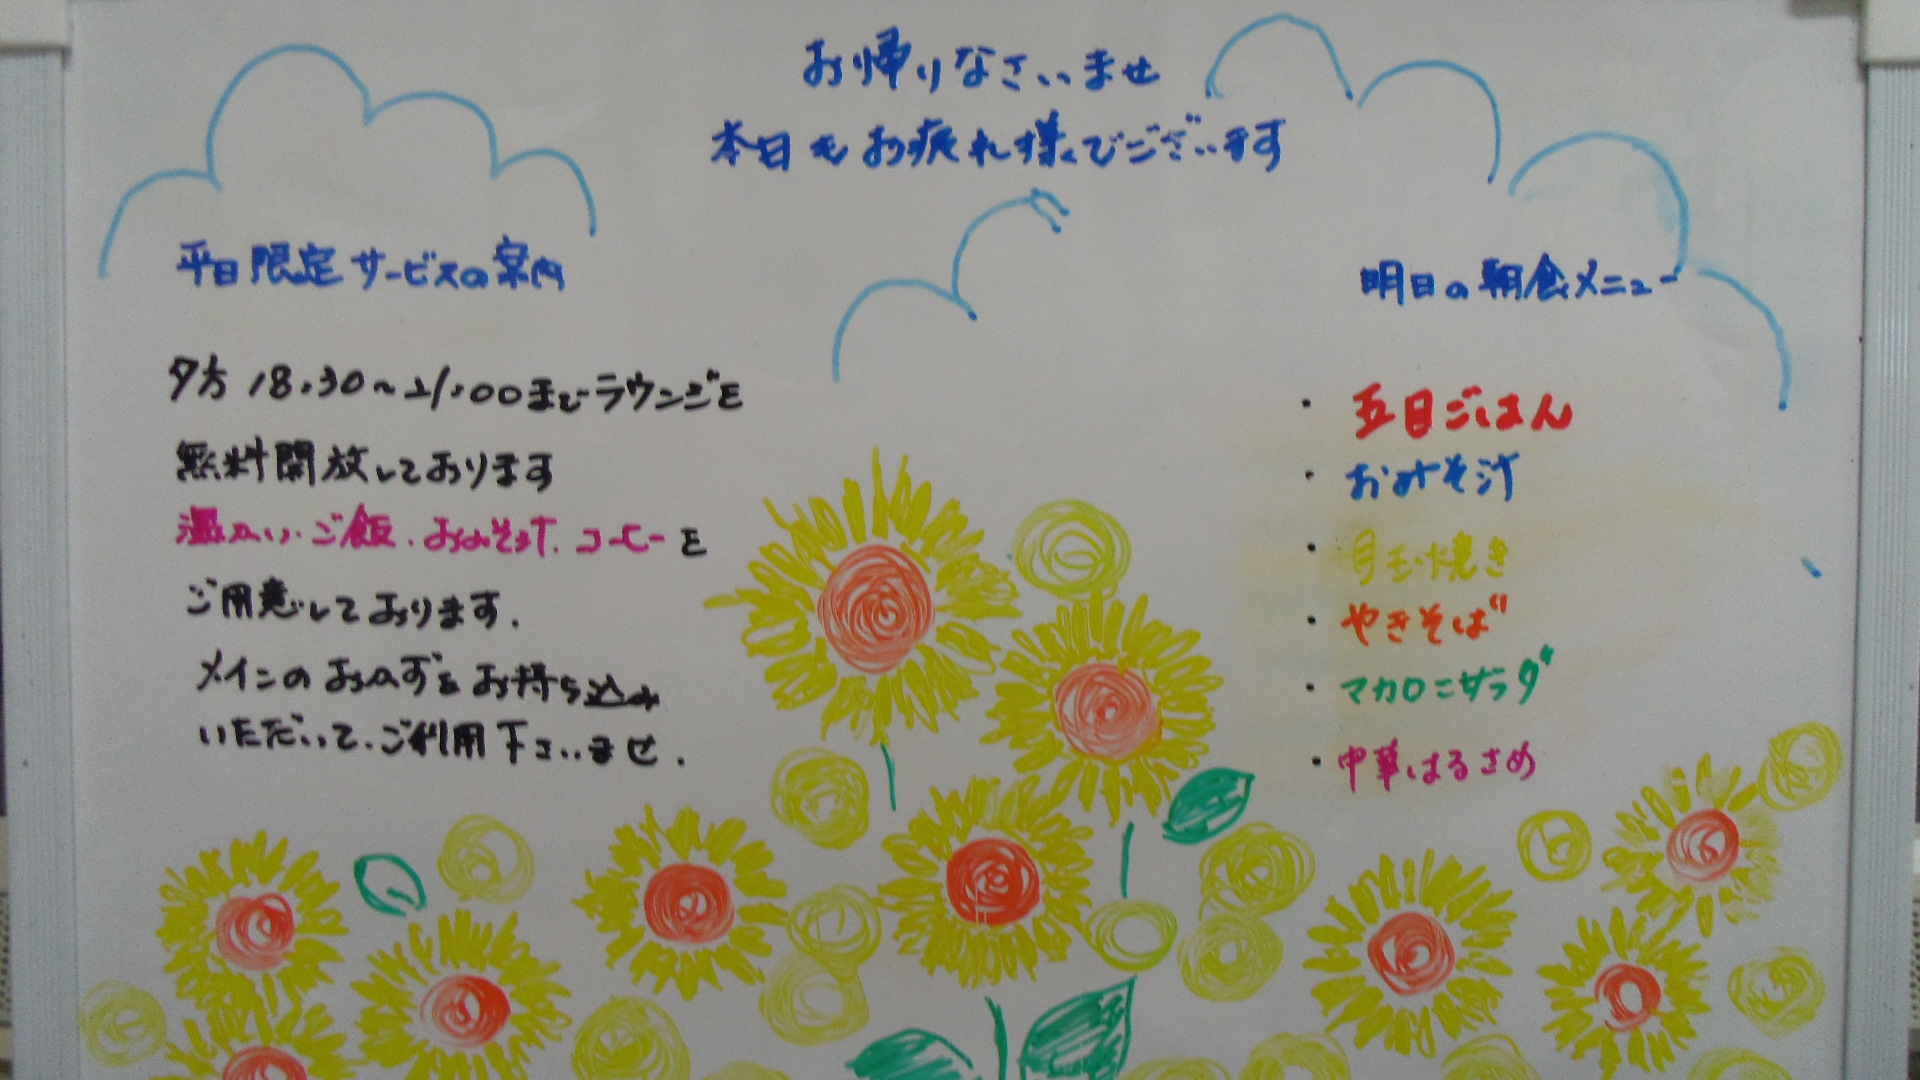 お帰りなさいませ
本日もお疲れ様でございます
平日限定サービスの案内
夕方 18:30〜21:00までラウンジを
無料開放しております
温かい、ご飯、おみそ汁、コーヒーを
ご用意しております.
メインのおかずをお持ち込み
いただいて、ご利用下さいませ.
明日の朝食メニュー
・五目ごはん
・おみそ汁
・月玉焼き
・やきそば
・マカロニサラダ
・中華はるさめ